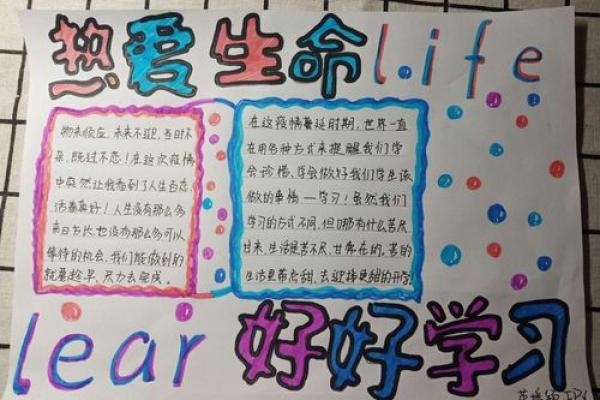 热爱生命life
物来顺应,未来不迎,当时不
杂,既过不恋!在这次疫情
中突然让我看到了人生百态,
活着真好!人生没有那么多
来日方长,也没有那么多可以
等待的机会,我们能做到的
就是趁早、尽力去完成。
在这疫情蔓延时期,世界一直
在用各种方式来提醒我们学
会珍惜、学会做好我们学生该
做的事情—学习!虽然我们
学习的方式不同,但哪有什么苦尽
甘来,生活是苦不尽,甘常在的,苦的
生活里带点甜,去迎接更甜的开学
lear 好好学习